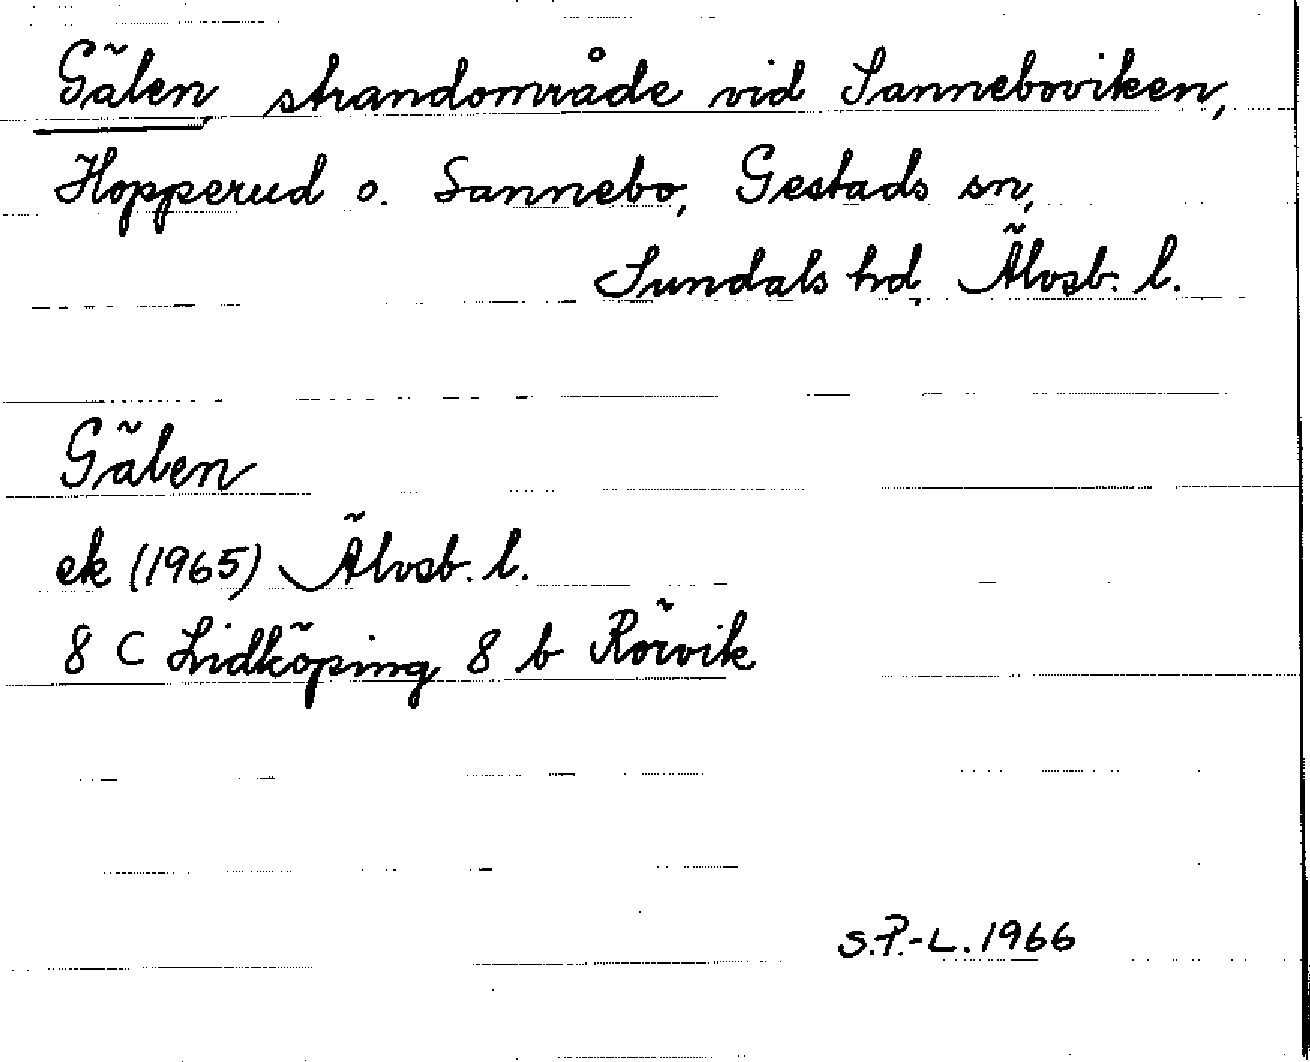 Gälen strandområde vid Sanneboviken,
Hopperud o. Sannebo, Gestads sn,
Sundals hd, Älvsb. l.
Gälen
ek (1965) Älvsb. l.
8 C Lidköping 8 b Rörvik
S.P.-L. 1966